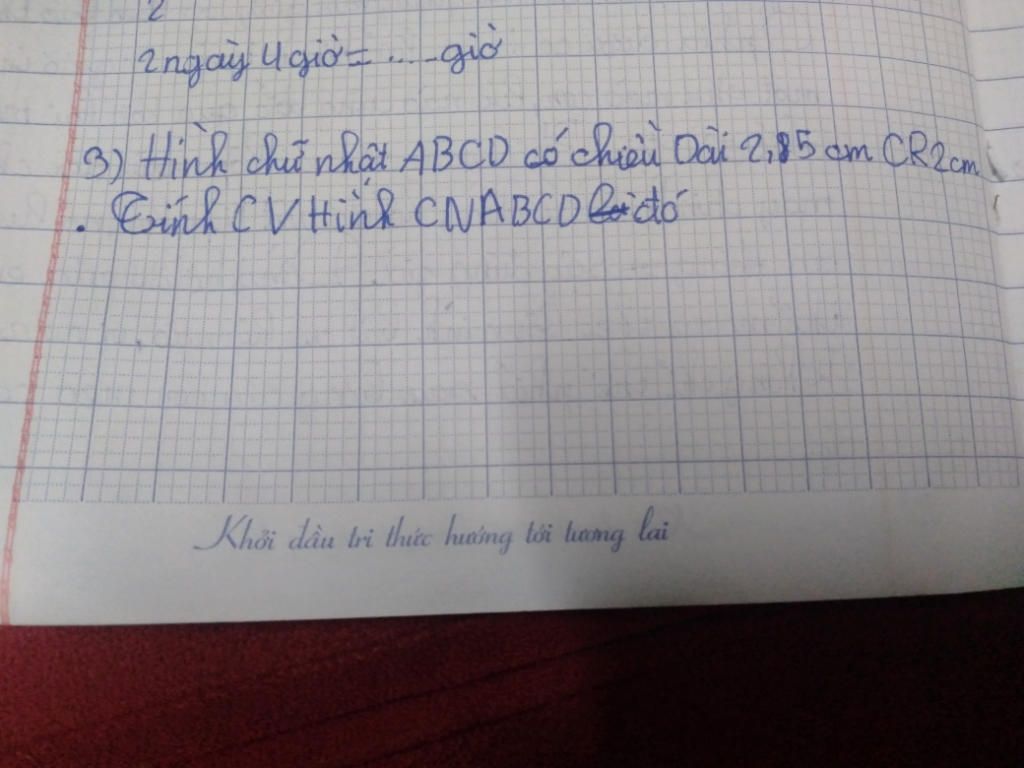 2
2 ngày 4 giờ = ..... giờ
3) Hình chữ nhật ABCD có chiều Dài 2,85 cm CR 2cm
. Tính CV Hình CN ABCD đó
Khởi đầu tri thức hướng tới tương lai